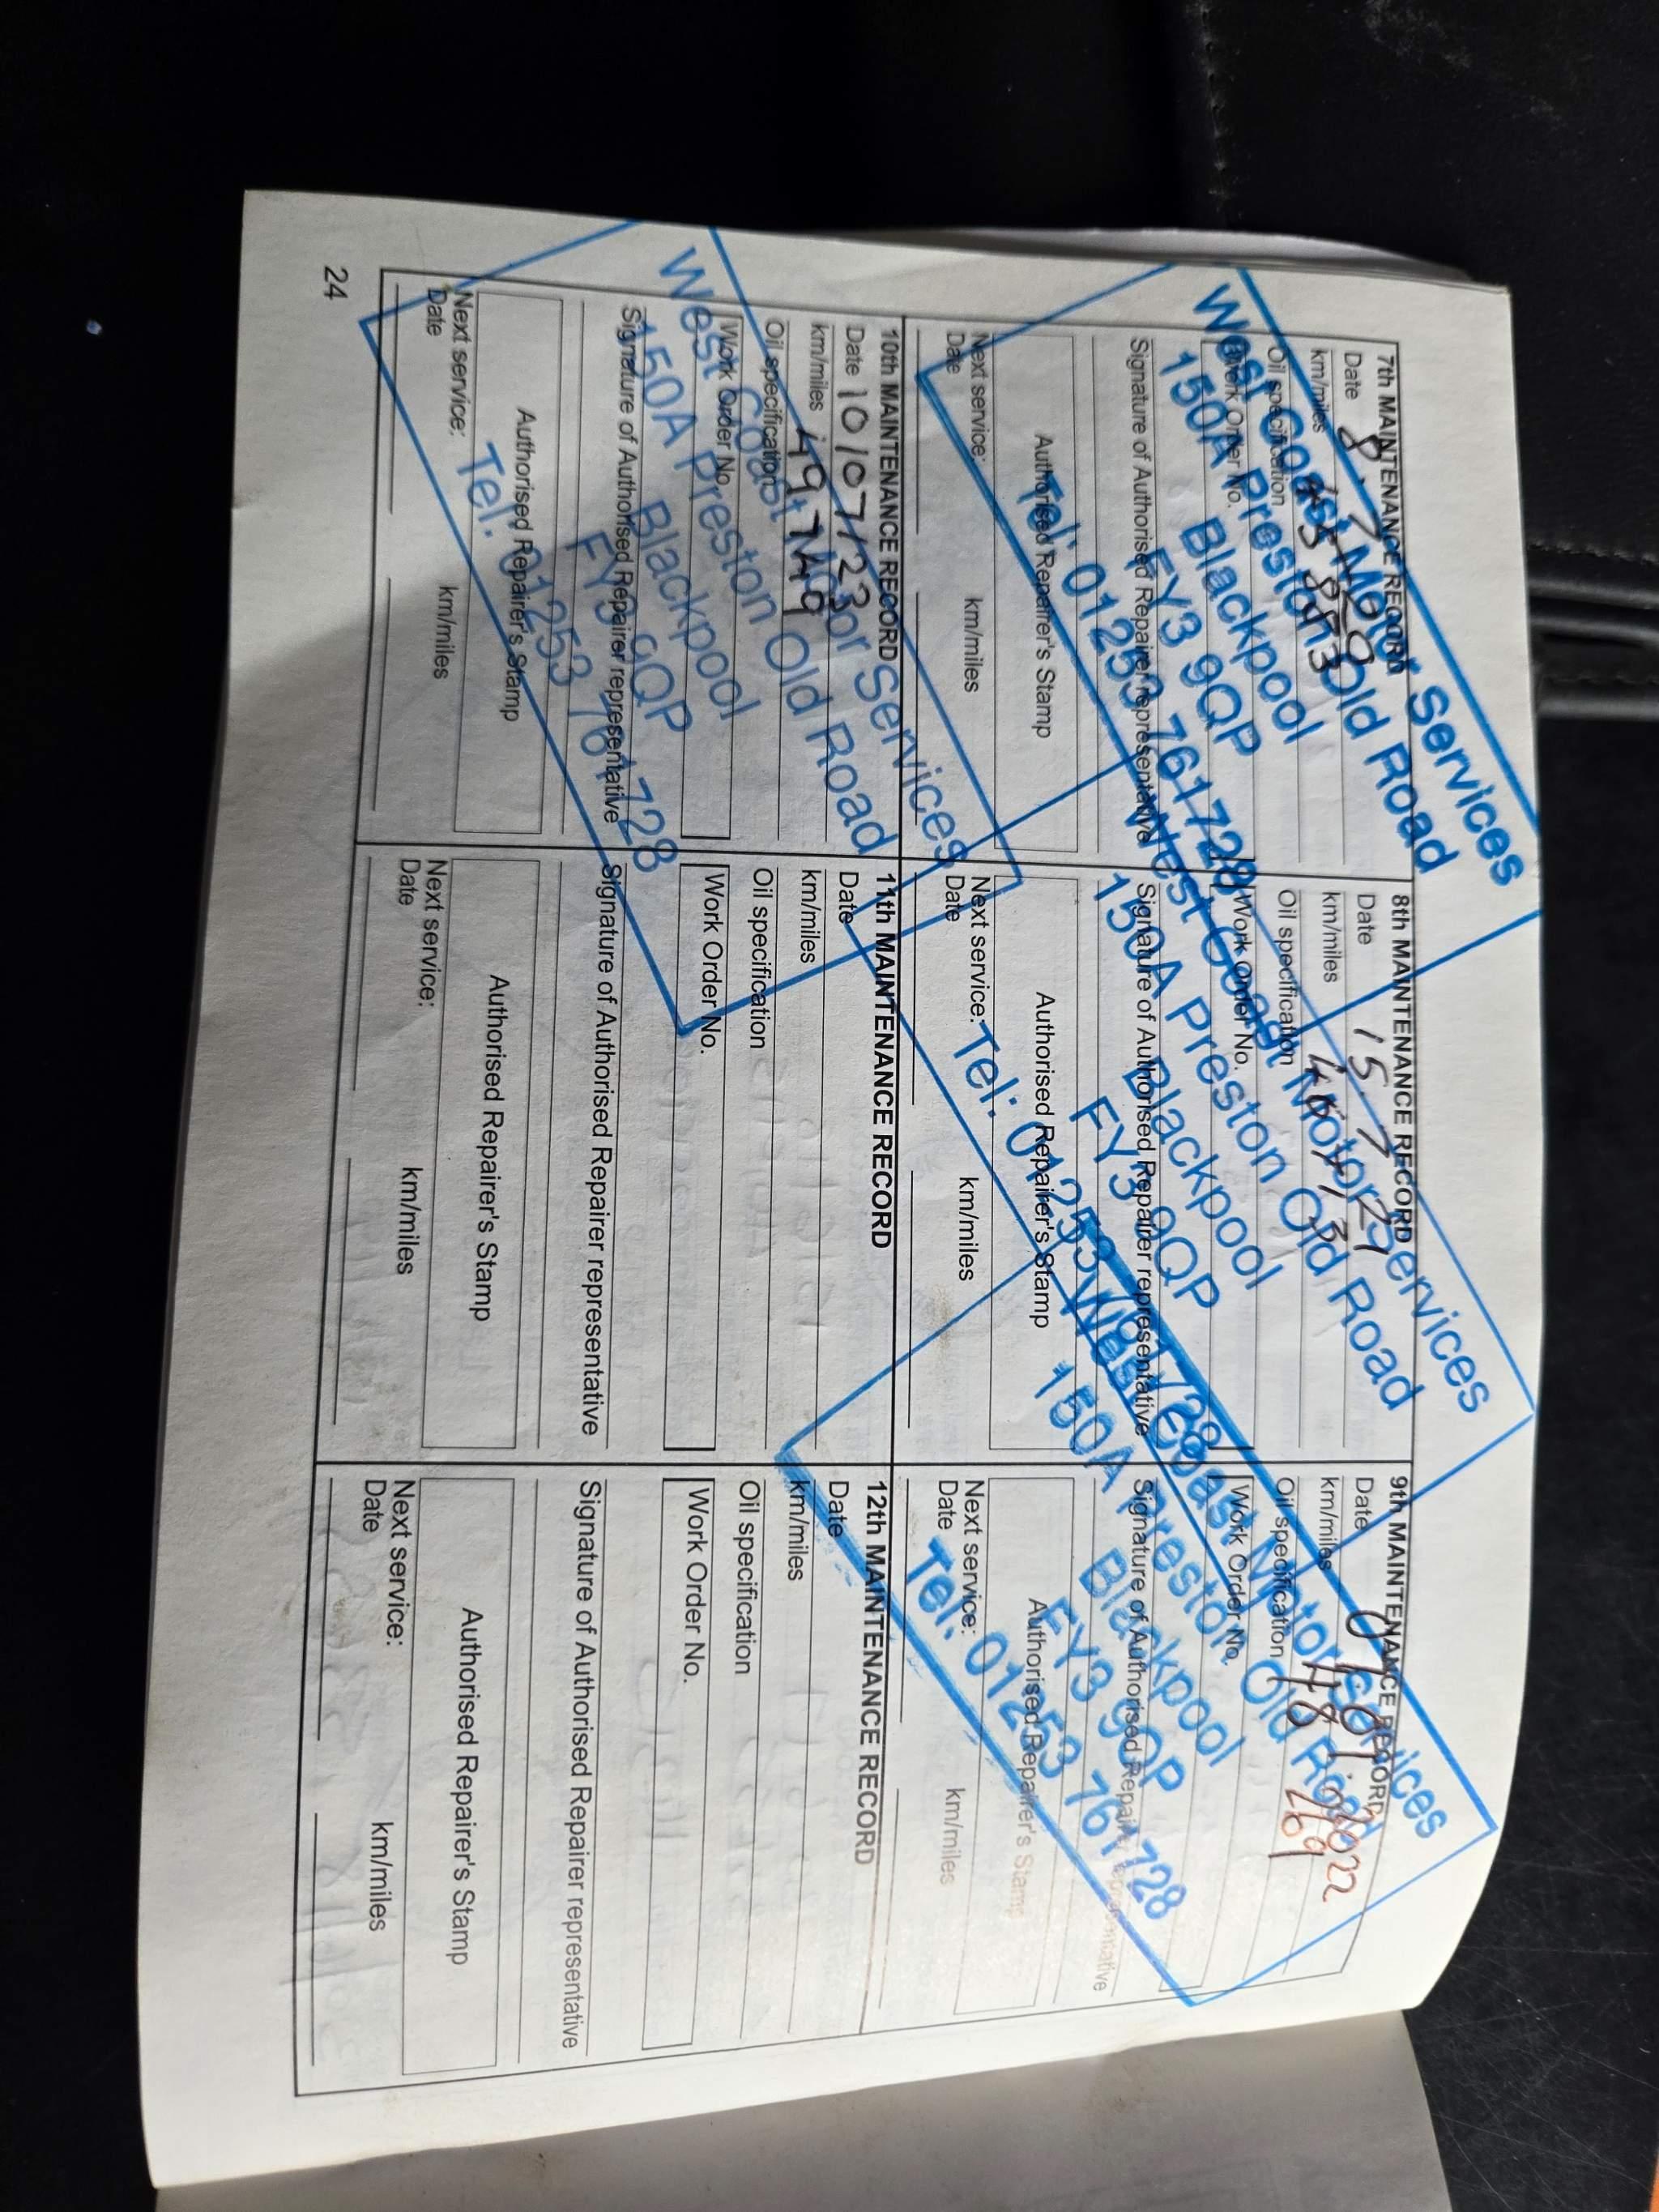 7th MAINTENANCE RECORD
Date 8. 7. 20
km/miles 45883
Oil specification
Work Order No.
Signature of Authorised Repairer representative
Authorised Repairer's Stamp
West Coast Motor Services
150A Preston Old Road
Blackpool
FY3 9QP
Tel: 01253 761728
Next service:
Date
km/miles
8th MAINTENANCE RECORD
Date 15. 7. 21
km/miles
Oil specification
Work Order No.
Signature of Authorised Repairer representative
Authorised Repairer's Stamp
West Coast Motor Services
150A Preston Old Road
Blackpool
FY3 9QP
Tel: 01253 761728
Next service:
Date
km/miles
9th MAINTENANCE RECORD
Date
km/miles 48269
Oil specification
Work Order No.
Signature of Authorised Repairer representative
Authorised Repairer's Stamp
West Coast Motor Services
150A Preston Old Road
Blackpool
FY3 9QP
Tel: 01253 761728
Next service:
Date
km/miles
10th MAINTENANCE RECORD
Date 10/07/23
km/miles 49749
Oil specification
Work Order No.
Signature of Authorised Repairer representative
Authorised Repairer's Stamp
West Coast Motor Services
150A Preston Old Road
Blackpool
FY3 9QP
Tel: 01253 761728
Next service:
Date
km/miles
11th MAINTENANCE RECORD
Date
km/miles
Oil specification
Work Order No.
Signature of Authorised Repairer representative
Authorised Repairer's Stamp
Next service:
Date
km/miles
12th MAINTENANCE RECORD
Date
km/miles
Oil specification
Work Order No.
Signature of Authorised Repairer representative
Authorised Repairer's Stamp
Next service:
Date
km/miles
24